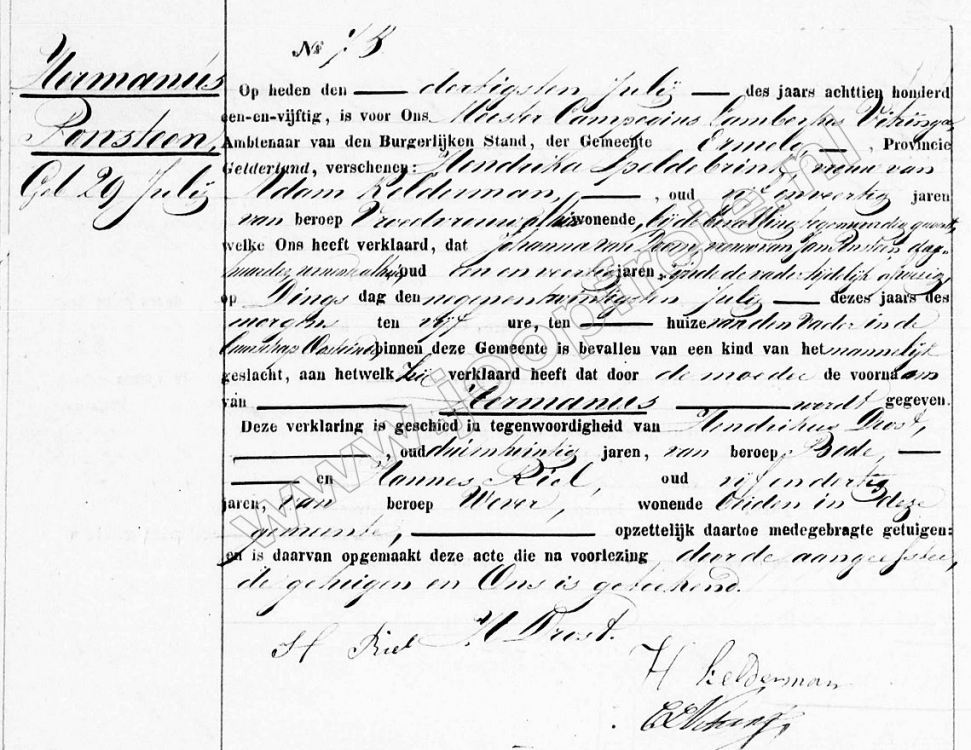 Hermanus
Ponsteen,
Geb 29 Julij
No 73
Op heden den dertigsten Julij des jaars achttien honderd
een-en-vijftig, is voor Ons Meester Campegius Lambertus Vitringa
Ambtenaar van den Burgerlijken Stand, der Gemeente Ermelo, Provincie
Gelderland, verschenen: Hendrika vrouw van
Adam Kelderman, oud jaren
van beroep Vroedvrouw wonende, bij de bevalling tegenwoordig geweest
welke Ons heeft verklaard, dat Johanna van vrouw van Jan Ponsteen dag-
huurder, oud een en veertig jaren, zijnde de vader tijdelijk afwezig
op Dings dag den negenentwintigsten Julij dezes jaars des
morgens ten vijf ure, ten huize van den Vader in de
buurtschap binnen deze Gemeente is bevallen van een kind van het mannelijk
geslacht, aan hetwelk zij verklaard heeft dat door de moeder de voornaam
van Hermanus wordt gegeven.
Deze verklaring is geschied in tegenwoordigheid van Hendrikus Drost,
, oud jaren, van beroep Bode,
en Hannes Riel, oud vijfendertig
jaren, van beroep Wever, wonende beiden in deze
gemeente, opzettelijk daartoe medegebragte getuigen:
en is daarvan opgemaakt deze acte die na voorlezing door de aangeefster,
de getuigen en Ons is geteekend.
H Riel H Drost.
H Kelderman
www.joopfrie.nl